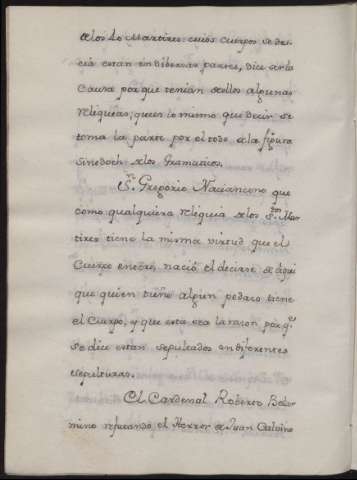 de los 40 Martires cuios cuerpos se de-
cia estan en diberças partes, dice ser la
Causa por que tenian de ellos algunas
Reliquias, que es lo mismo que decir se
toma la parte por el todo a la figura
Sinedoch de los Gramaticos.
Sn. Gregorio Naciancono que
como qualquiera Reliquia de los Stos. Mar-
tires tiene la misma virtud que el
Cuerpo entero, nació el decirse de aqui
que quien tiene algun pedaço tiene
el Cuerpo, y que esta era la raçon por q.
se dice estan sepultados en diferentes
sepulturas.
El Cardenal Roberto Belar-
mino refutando el Herror de Juan Calvino